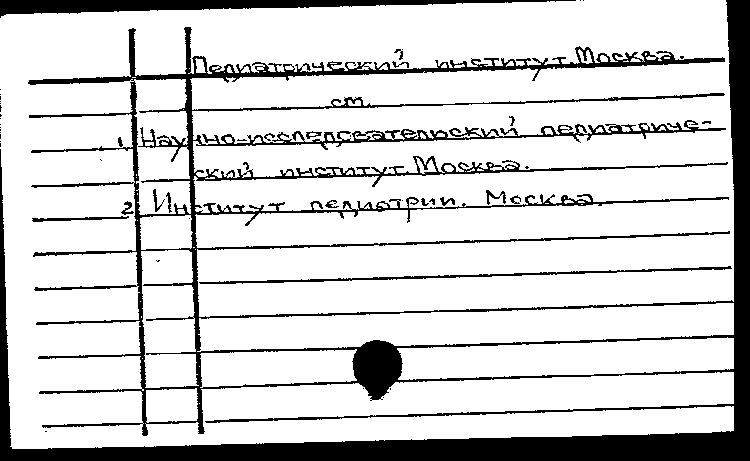 Педиатрический институт. Москва.
см.
1. Научно-исследовательский педиатриче-
ский институт. Москва.
2. Институт педиатрии. Москва.